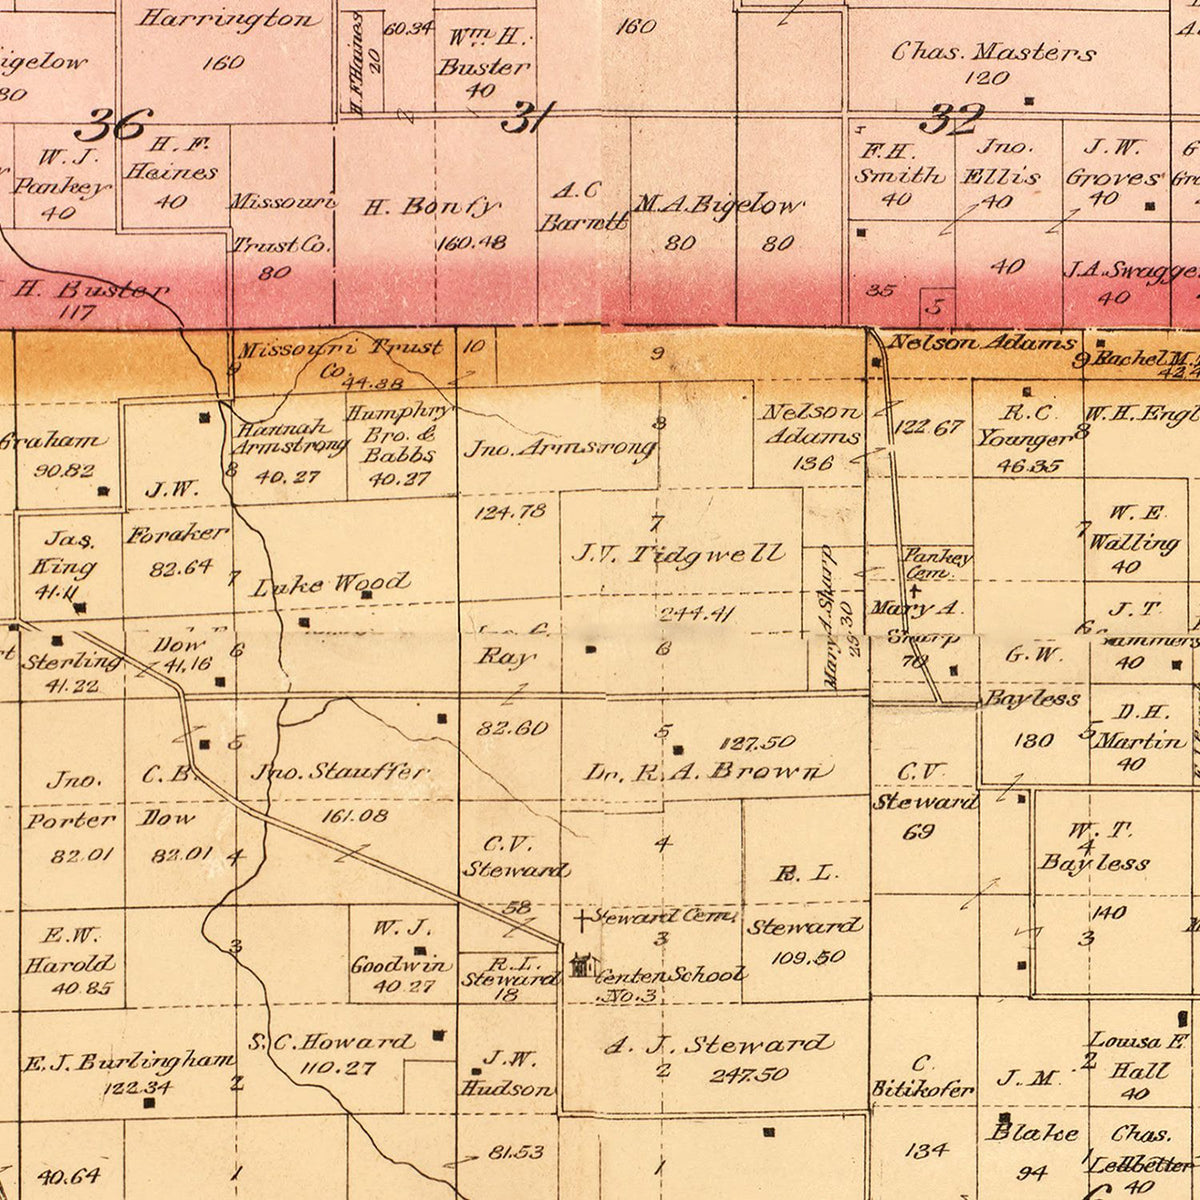 Harrington
160
igelow
80
H. F. Haines
20
60.34
Wm H.
Buster
40
160
Chas. Masters
120
36
31
32
W. J.
Pankey
40
H. F.
Heines
40
Missouri
Trust Co.
80
H. Bonfy
160.48
A. C
Barnett
M. A. Bigelow
80
80
F. H.
Smith
40
Jno.
Ellis
40
J. W.
Groves
40
35
5
40
J. A. Swagge
40
H. Buster
117
Missouri Trust
Co.
44.88
10
9
9
Nelson Adams
9
Rachel M.
Graham
90.82
J. W.
Foraker
82.64
Hannah
Armstrong
40.27
8
Humphry
Bro. &
Babbs
40.27
Jno. Armstrong
8
124.78
Nelson
Adams
136
122.67
R. C.
Younger
46.35
8
W. H. Engl
Jas.
King
41.11
7
Luke Wood
7
J. V. Tidgwell
244.41
Mary A. Sharp
25.30
Pankey
Cem.
Mary A.
Sharp
70
7
W. E.
Walling
40
J. T.
ammers
40
6
Sterling
41.22
Dow
41.16
6
Ray
82.60
6
G. W.
Bayless
180
D. H.
Martin
40
5
Jno.
Porter
82.01
C. B.
Dow
82.01
5
4
Jno. Stauffer
161.08
5
127.50
Dr. R. A. Brown
C. V.
Steward
69
C. V.
Steward
58
4
R. L.
Steward
109.50
W. T.
4
Bayless
140
3
E. W.
Harold
40.85
3
W. J.
Goodwin
40.27
R. L.
Steward
18
Steward Cem.
3
Center School
No. 3
E. J. Burlingham
122.34
2
S. C. Howard
110.27
J. W.
Hudson
81.53
A. J. Steward
2
247.50
C.
Bitikofer
134
J. M.
Blake
94
2
Louisa E
Hall
40
Chas.
Ledbetter
40
40.64
1
1
1
6